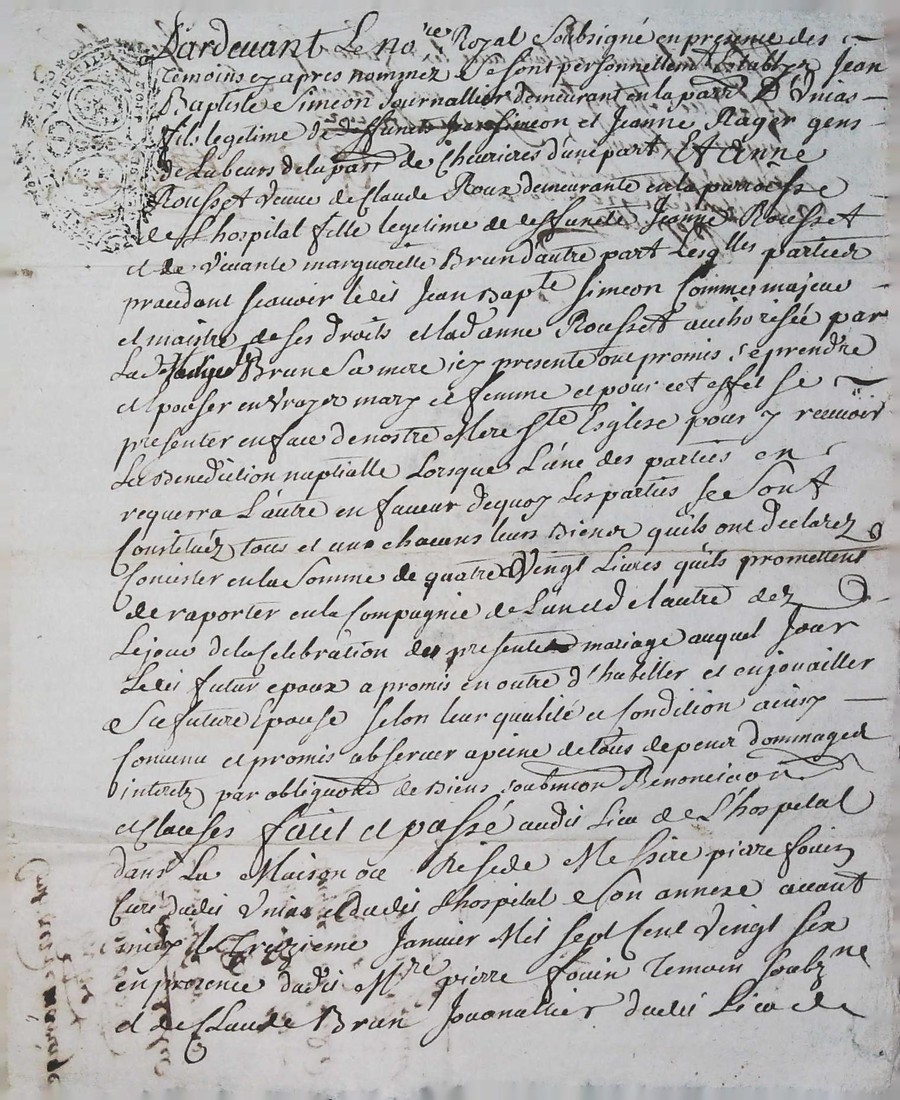 Pardevant Le no.re Royal Soubsigné en presence des
temoins cy apres nommez se sont personnellem.t Establys Jean
Baptiste Simeon Journallier demeurant en la parr. D'Unias
fils legetime de deffunct Simeon et Jeanne Rager gens
de Labeurs de la parr. de Chevrieres d'une part, Et Anne
Rousset veuve de Claude Roux demeurante en la parroisse
de L'hospital fille legetime de deffunctt Jeanne Rousset
et de vivante marguerette Brun d'autre part Lesq.lles parties
procedant scavoir ledit Jean Bap.te Simeon Comme majeur
et maistre de ses droits et lad. anne Rousset authorisée par
La d. Brun Sa mere icy presente ont promis s'éprendre
et epouser en vrays mary et femme et pour cet effet se
presenter en face de nostre Mere S.te Esglise pour y recevoir
La Benediction nuptialle Lorsque L'une des parties en
requerra L'autre en faveur dequoy Les parties se sont
Constituéz tous et uns chacuns leurs Biens quils ont declarez
Consister en la Somme de quatre Vingt Livres quils promettent
de raporter en la Compagnie de L'un et de l'autre dez
Le jour de la Celebration du present mariage auquel Jour
Ledit futur epoux a promis en outre d'habiller et enjouailler
Sa future Epouse selon leur qualité et Condition ainsy
Convenu et promis observer a peine de tous depens dommages
interetz par obligaons de Biens soubmion Renonciaon
et Clauses fait et passé audit Lieu de L'hospital
dans La Maison ou Reside Messire pierre fouin
Curé dudit Unias et dudit L'hospital Son annexe avant
midy Le Treizieme Janvier Mil Sept Cent Vingt Six
en presence dudit M.re pierre fouin Temoin Soubz.ne
et de Claude Brun Journallier dudit Lieu de